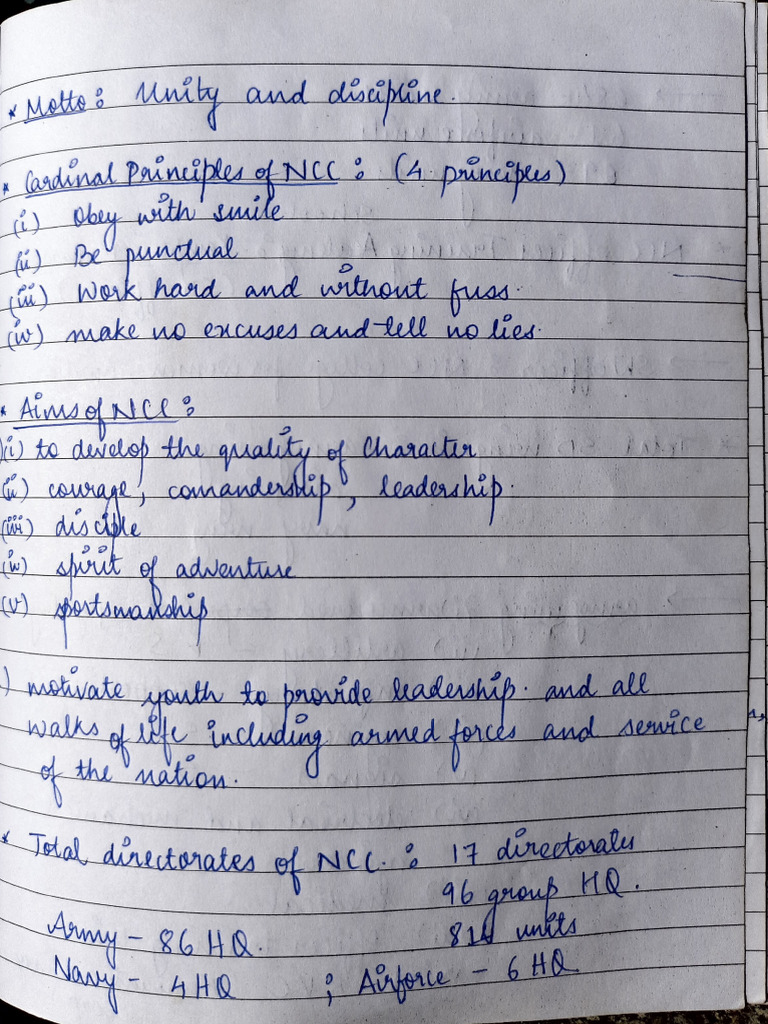 * Motto : Unity and discipline.
* Cardinal Principles of NCC : (4 principles)
(i) Obey with smile
(ii) Be punctual
(iii) Work hard and without fuss.
(iv) make no excuses and tell no lies.
* Aims of NCC :
(i) to develop the quality of Character
(ii) courage, comandership, leadership.
(iii) disciple
(iv) spirit of adventure
(v) sportsmanship
) motivate youth to provide leadership. and all
walks of life including armed forces and service
of the nation.
* Total directorates of NCC. : 17 directorates
96 group HQ.
Army - 86 HQ. units
Navy - 4 HQ ; Airforce - 6 HQ